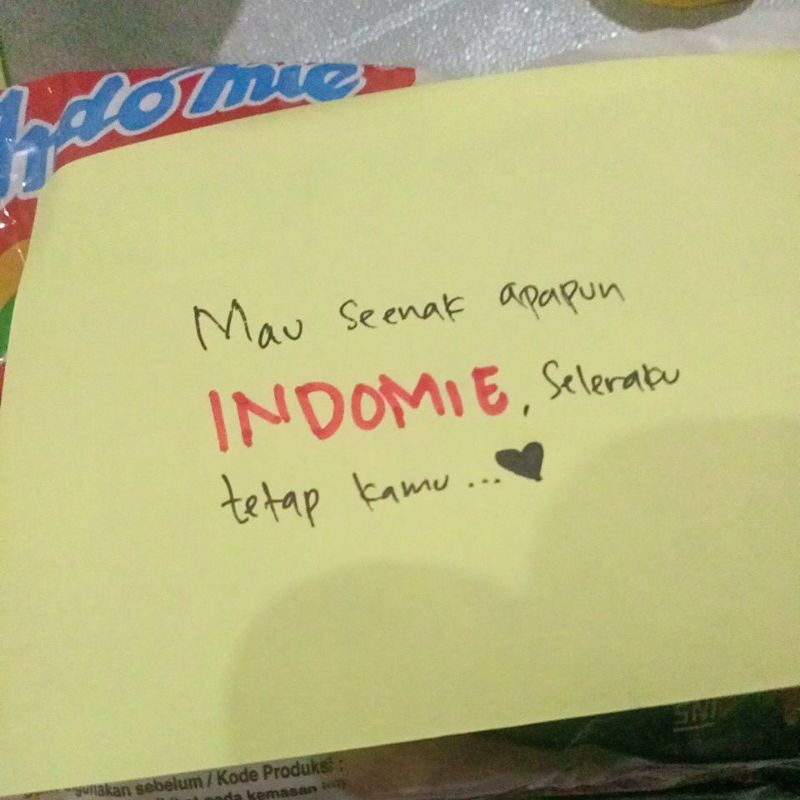 Indomie
Mau seenak apapun
INDOMIE, Seleraku
tetap kamu...♥
SNI
sebelum / Kode Produksi :
pada kemasan